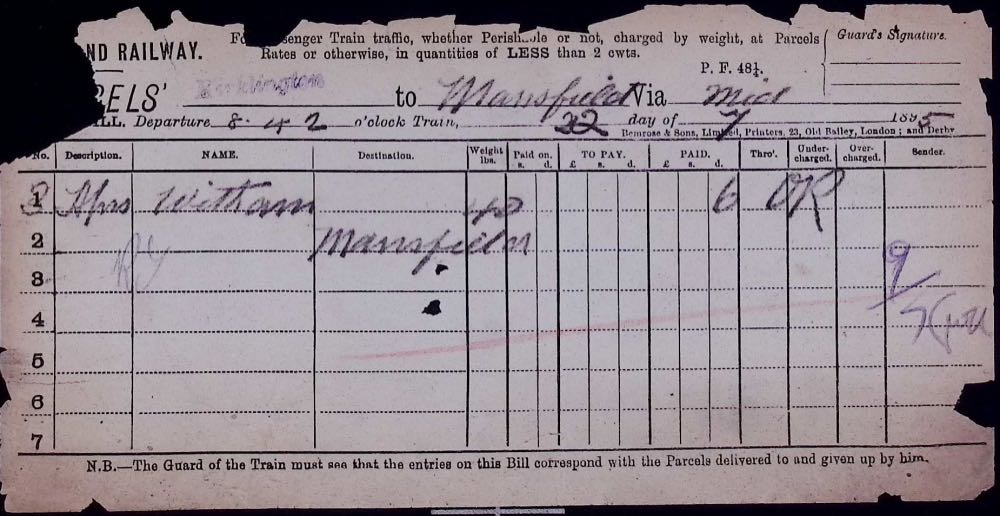 For senger Train traffic, whether Perish le or not, charged by weight, at Parcels
Rates or otherwise, in quantities of LESS than 2 cwts.
Guard's Signature.
ND RAILWAY.
P. F. 48½.
Kirklington
ELS' to Mansfield Via Mid
LL. Departure 8.42 o'clock Train, 22 day of 7 1895
Bemrose & Sons, Limited, Printers, 23, Old Bailey, London; and Derby
No. Description. NAME. Destination. Weight lbs. Paid on. s. d. TO PAY. £ s. d. PAID. £ s. d. Thro'. Under-charged. Over-charged. Sender.
1 Witham 40 6 OR
2 Mansfield
3
9
4
5
6
7
N.B.—The Guard of the Train must see that the entries on this Bill correspond with the Parcels delivered to and given up by him.